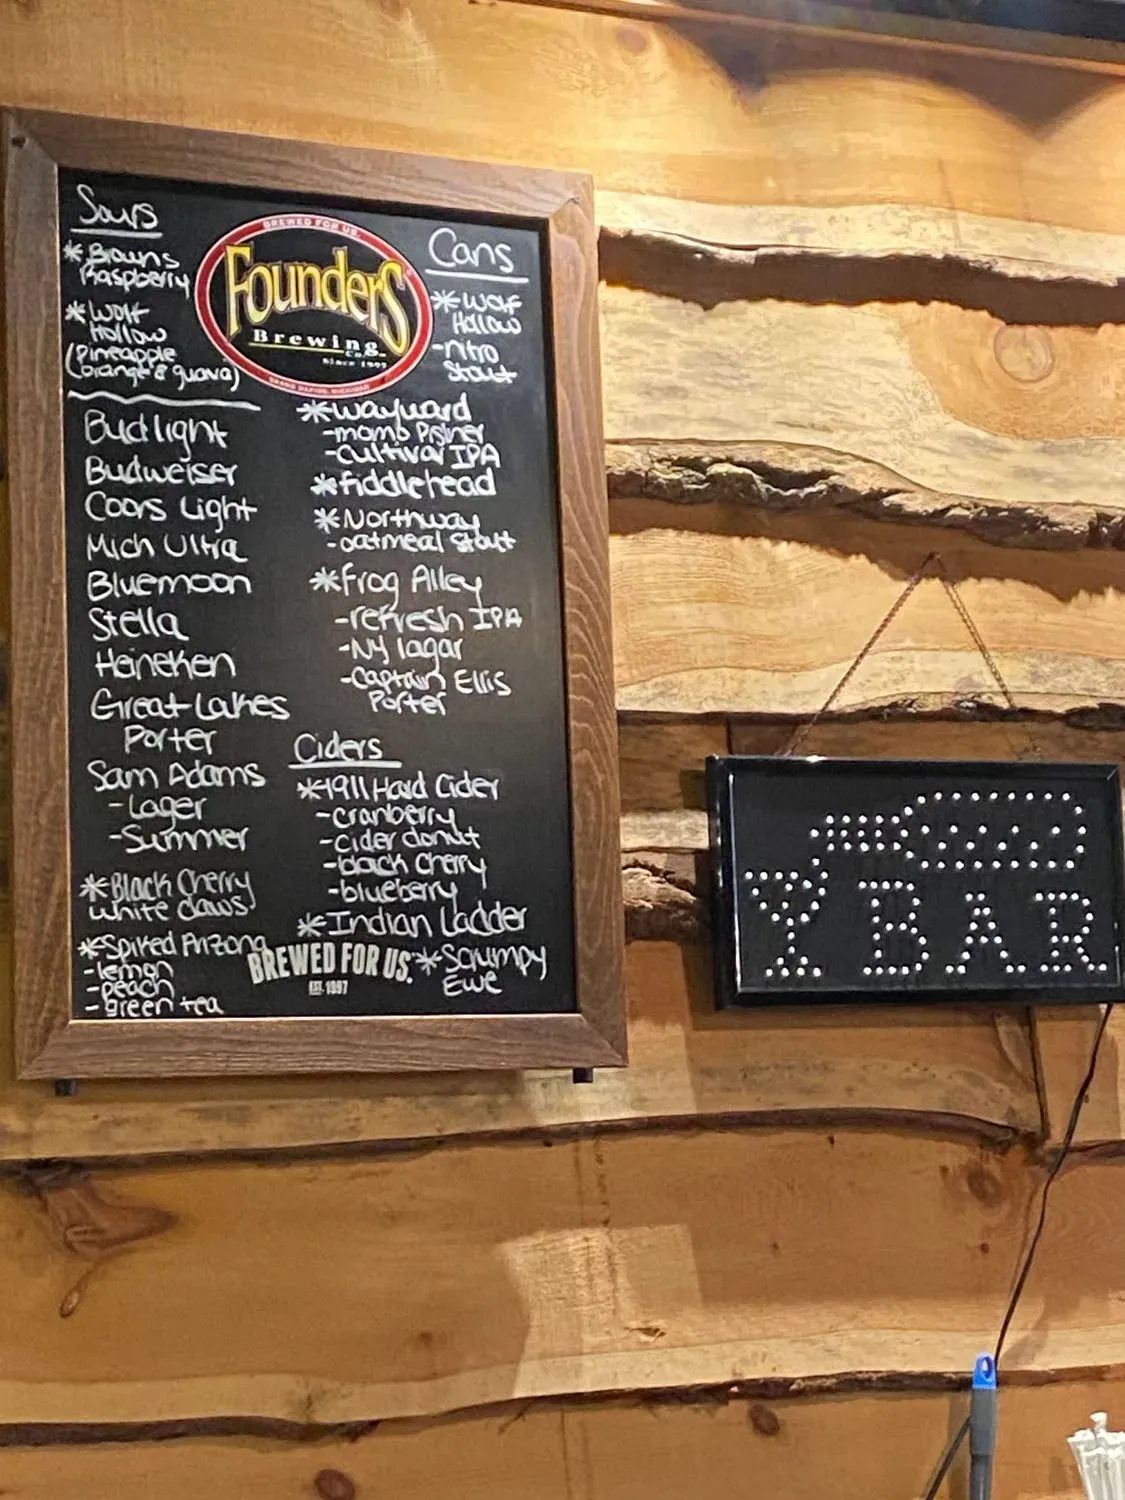 Sours
* Browns
Raspberry
* Wolf
Hollow
(Pineapple
orange & guava)
Bud light
Budweiser
Coors Light
Mich Ultra
Bluemoon
Stella
Heineken
Great Lakes
Porter
Sam Adams
- Lager
- Summer
* Black Cherry
White Claws
* Spiked Arizona
- lemon
- peach
- green tea
BREWED FOR US.
FounderS
Brewing
Co.
Since 1997
GRAND RAPIDS, MICHIGAN
Cans
* Wolf
Hollow
- nitro
Stout
* Wayward
- momb Pislner
- Cultivar IPA
* Fiddlehead
* Northway
- oatmeal stout
* Frog Alley
- refresh IPA
- NY lagar
- Captain Ellis
Porter
Ciders
* 1911 Hard Cider
- cranberry
- cider donut
- black cherry
- blueberry
* Indian Ladder
* Scrumpy
Ewe
BREWED FOR US.
EST. 1997
BAR